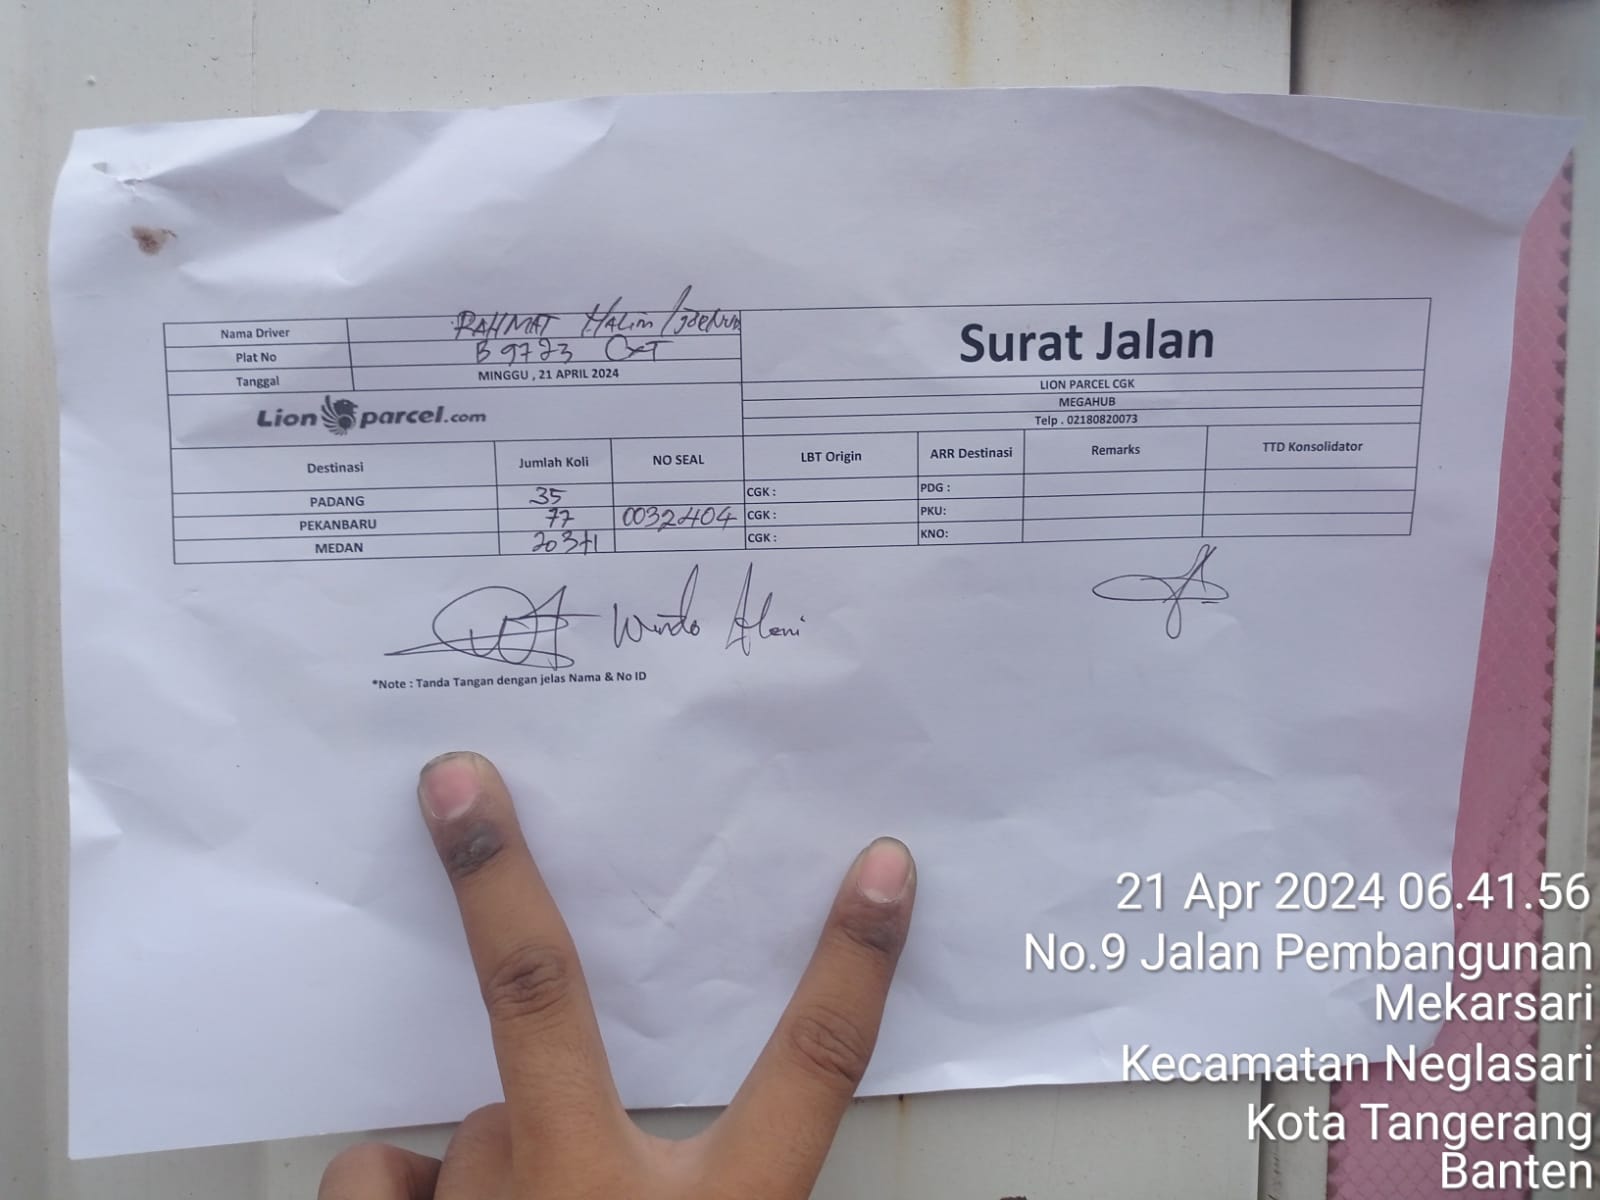 Nama Driver RAHMAT HALIM
Plat No B 9723 OXT
Tanggal MINGGU , 21 APRIL 2024
Surat Jalan
LION PARCEL CGK
MEGAHUB
Telp . 02180820073
Lion parcel.com
Destinasi Jumlah Koli NO SEAL LBT Origin ARR Destinasi Remarks TTD Konsolidator
PADANG 35 CGK : PDG :
PEKANBARU 77 0032404 CGK : PKU:
MEDAN CGK : KNO:
*Note : Tanda Tangan dengan jelas Nama & No ID
21 Apr 2024 06.41.56
No.9 Jalan Pembangunan
Mekarsari
Kecamatan Neglasari
Kota Tangerang
Banten